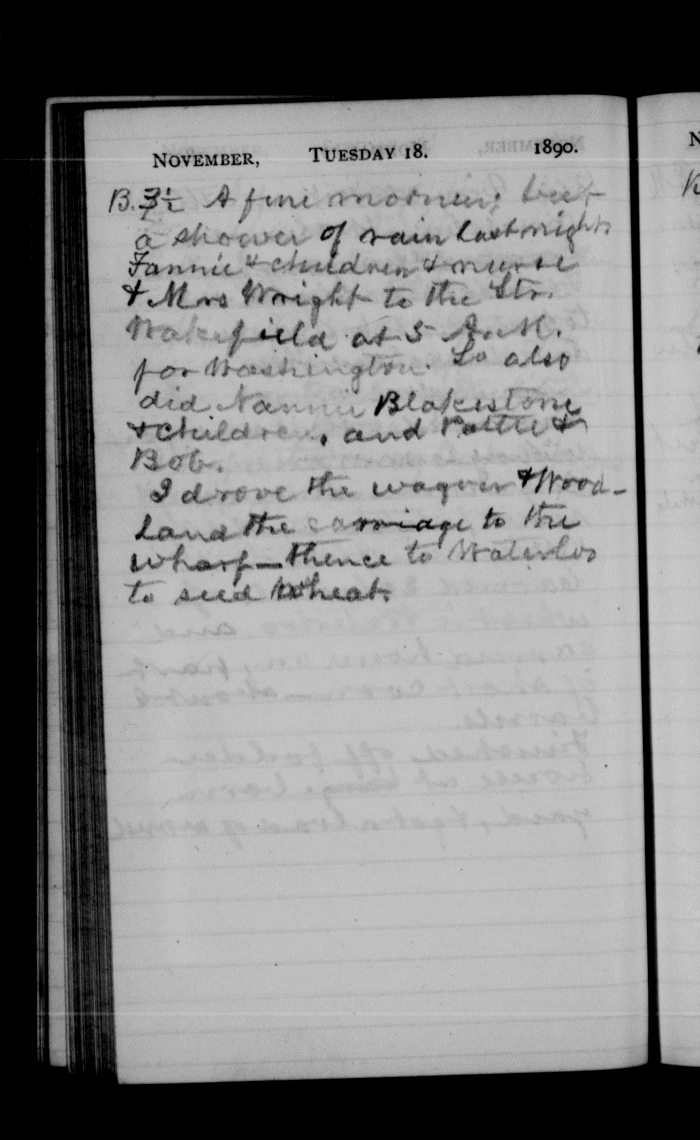 NOVEMBER, TUESDAY 18. 1890.
B. 3½ A fine morning but
a shower of rain last night
Fannie & children & nurse
& Mrs Wright to the Str.
Wakefield at 5 A.M.
for Washington. So also
did Nannie Blakistone
& children, and Pattie &
Bob.
I drove the wagon & Wood-
land the carriage to the
wharf — thence to Waterloo
to seed wheat.